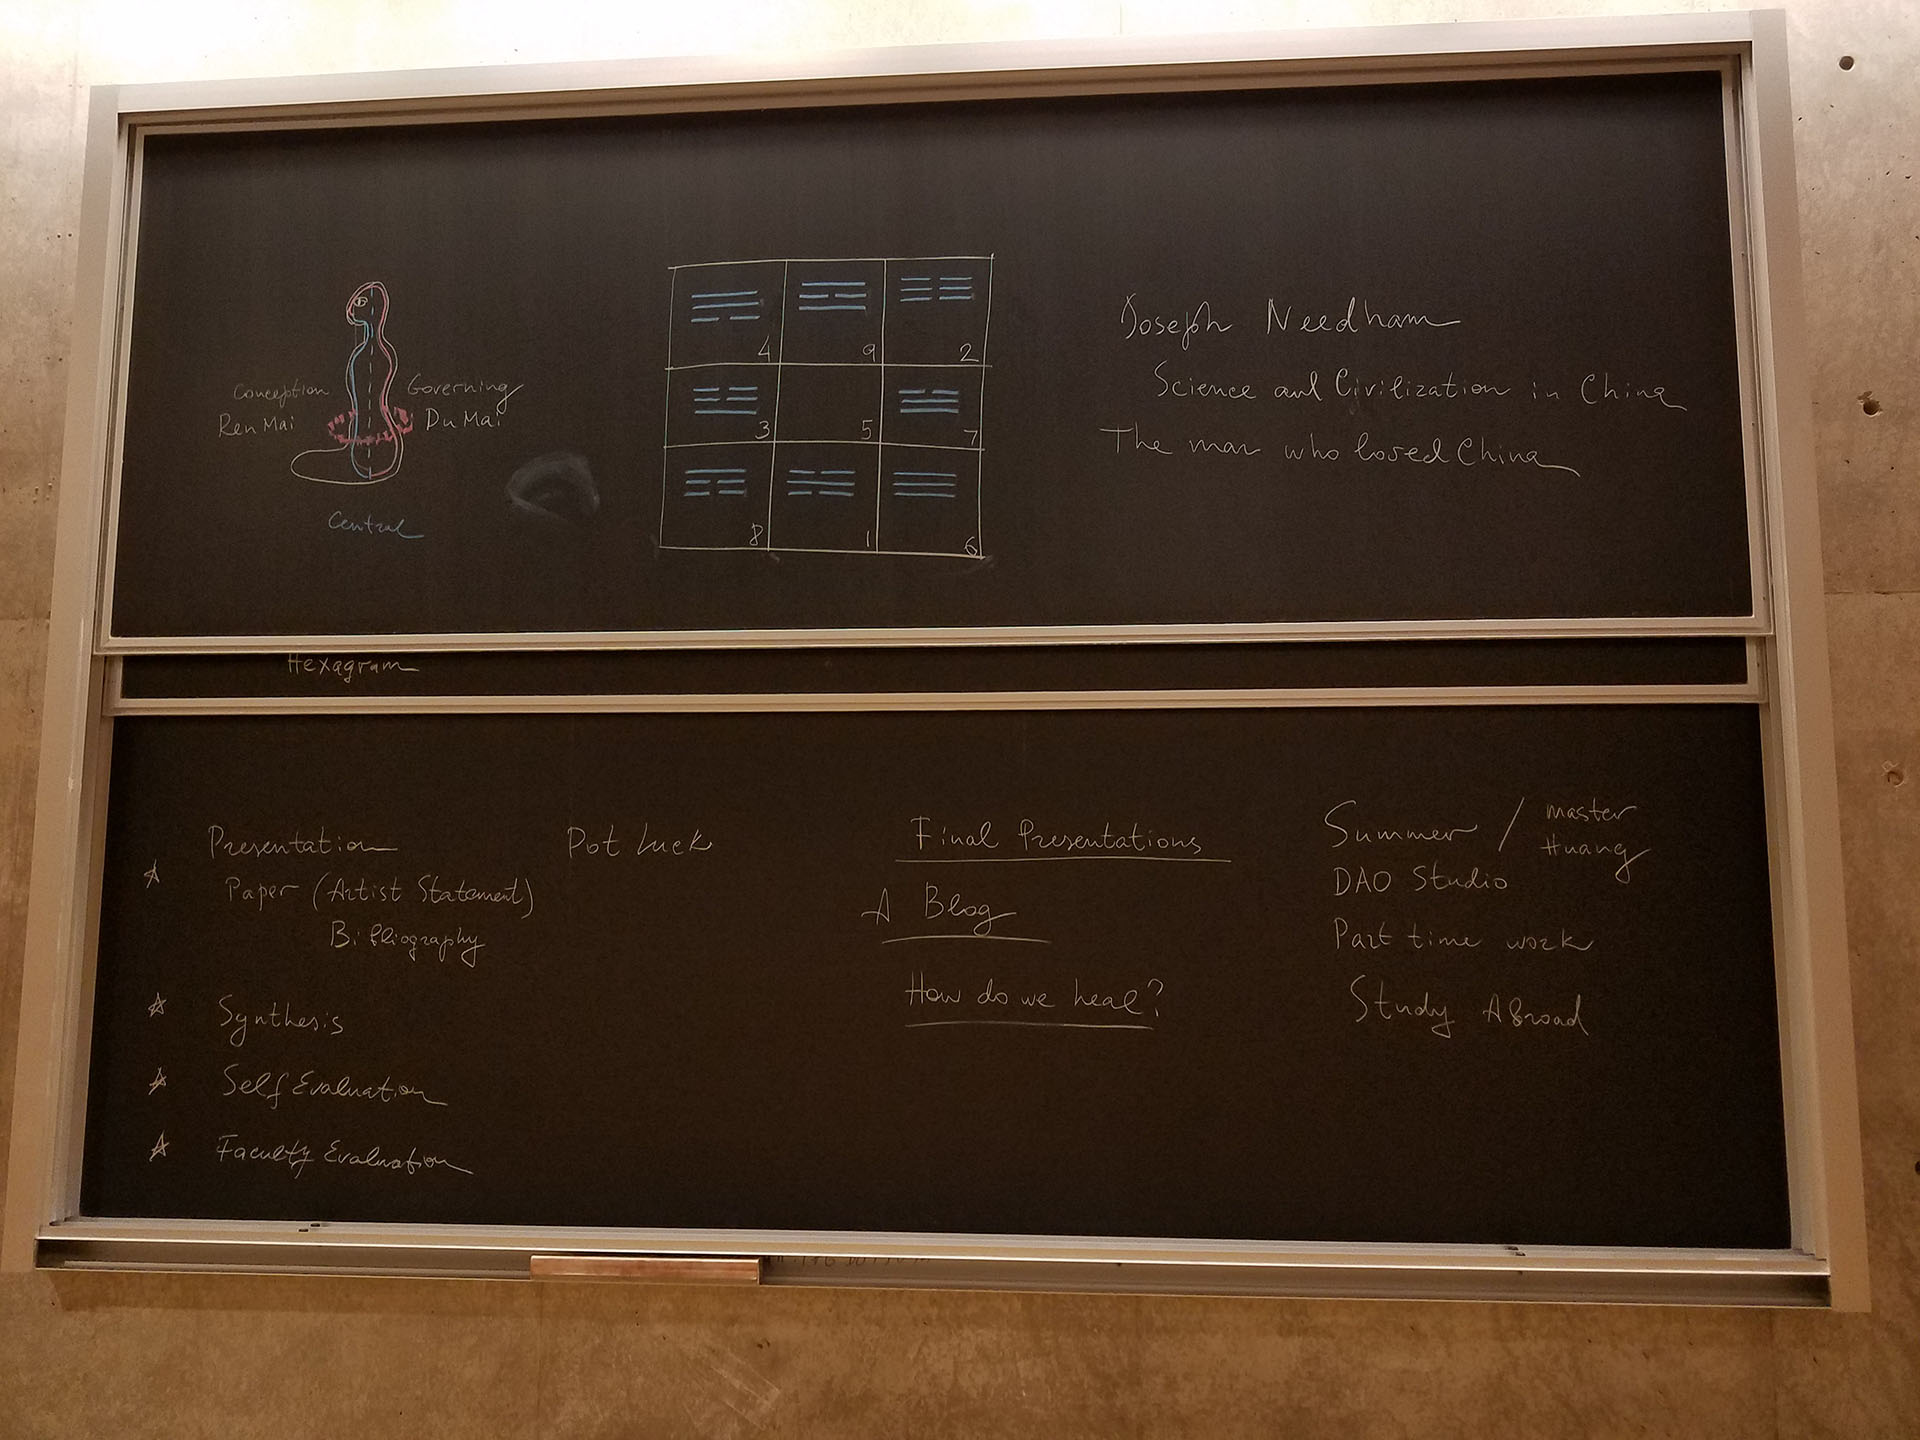 Conception
Ren Mai
Governing
Du Mai
Central
4 9 2
3 5 7
8 1 6
Joseph Needham
Science and Civilization in China
The man who loved China
Hexagram
Presentation
Paper (Artist Statement)
Bibliography
Synthesis
Self Evaluation
Faculty Evaluation
Pot Luck
Final Presentations
A Blog
How do we heal?
Summer / master
Huang
DAO Studio
Part time work
Study Abroad